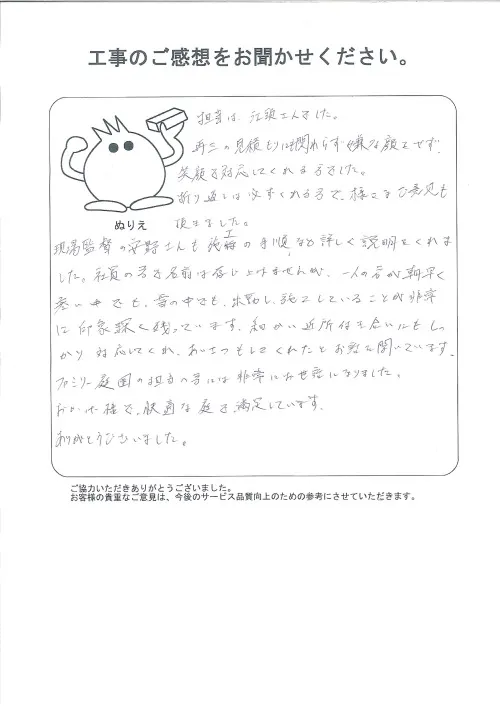 工事のご感想をお聞かせください。
担当は、江頭さんでした。
再三の見積もりにも関わらず嫌な顔もせず、
笑顔で対応してくれる方でした。
折り返しは必ずくれる方で、様々なご意見も
頂きました。
ぬりえ
現場監督の安野さんも施工の手順など詳しく説明をくれま
した。社員の方で名前は存じ上げませんが、一人の方が朝早く
寒い中でも、雪の中でも、出勤し、施工していることが非常
に印象深く残っています。細かい近所付き合いにもしっ
かり対応してくれ、あいさつもしてくれたとお話を聞いています。
ファミリー庭園の担当の方には非常にお世話になりました。
おかげ様で、快適な庭で満足しています。
ありがとうございました。
ご協力いただきありがとうございました。
お客様の貴重なご意見は、今後のサービス品質向上のための参考にさせていただきます。